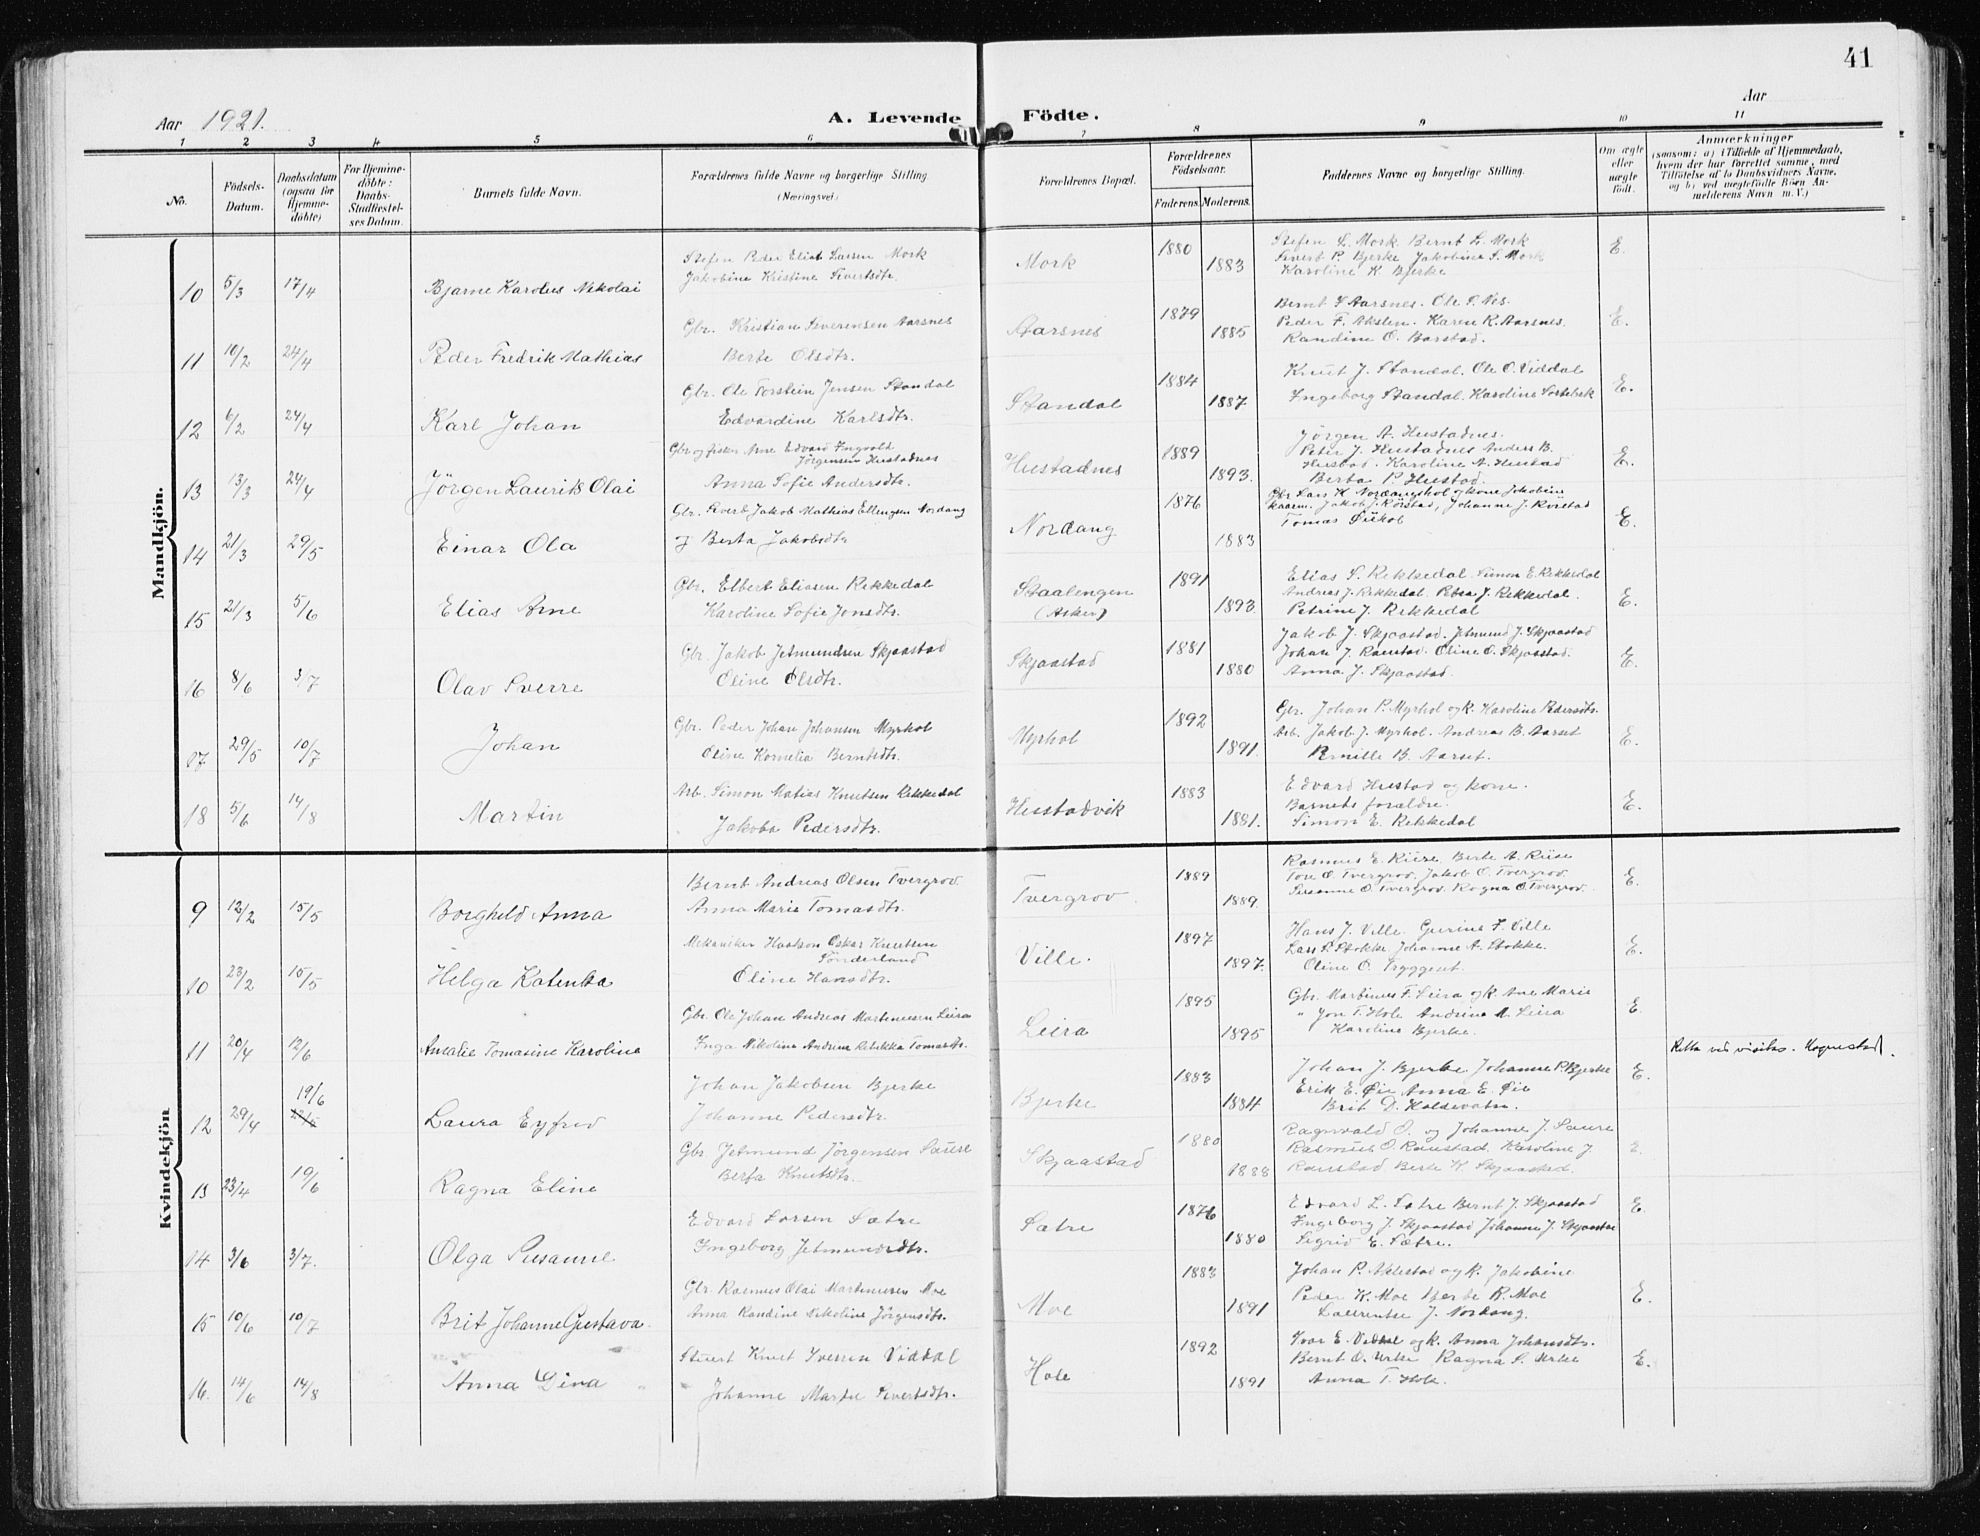 41
Aar 1921.
A. Levende Födte.
Aar
1 2 3 4 5 6 7 8 9 10 11
No.
Födsels-Datum.
Daabsdatum (ogsaa for Hjemme-döbte)
For Hjemme-döbte: Daabs-Stadfæstel-ses Datum.
Barnets fulde Navn.
Forældrenes fulde Navne og borgerlige Stilling. (Næringsvei)
Forældrenes Bopæl.
Forældrenes Födselsaar.
Faderens. Moderens.
Faddernes Navne og borgerlige Stilling.
Om ægte eller uægte født.
Anmærkninger
(saasom: a) i Tilfælde af Hjemmedaab,
hvem der har forrettet samme, med
Tilføielse af to Daabsvidners Navne,
og b) ved uægtefödte Börn An-
melderens Navn m. V.)
Mandkjön.
10 5/3 17/4 Bjarne Karolus Nikolai
Stefen Peder Elias Larsen Mork
Jakobine Kristine Sivertsdtr.
Mork 1880 1883
Stefen L. Mork Bernt L. Mork
Sivert P. Bjerke Jakobine S. Mork
Karoline K. Bjerke
E.
11 10/2 24/4 Peder Fredrik Mathias
Gbr. Kristian Severensen Aarsnes
Berte Olsdtr.
Aarsnes 1879 1885
Bernt S Aarsnes. Ole S. Nes.
Peder F. Akslen. Karen K. Aarsnes.
Randine O. Barstad.
E.
12 6/2 24/4 Karl Johan
Gbr. Ole Torstein Jensen Standal
Edvardine Karlsdtr.
Standal 1884 1887
Knut J. Standal. Ole O. Viddal
Ingeborg Standal. Karoline
E.
13 13/3 24/4 Jörgen Laurits Olai
Gbr og fisker Arne Edvard Ingvald
Jörgensen Hustadnes
Anna Sofie Andersdtr.
Hustadnes 1889 1893.
Jörgen A. Hustadnes.
Peter J. Hustadnes Anders B.
Hustad. Karoline A. Hustad
Berta P. Hustad.
E.
14 21/3 29/5 Einar Ola
Gbr. Sivert Jakob Mathias Ellingsen Nordang
g Berta Jakobsdtr
Nordang 1876 1883
Gbr Lars K. Nordangshol og kone Jakobine
Jakob J. Rörstad, Johanne J.
Tomas
E.
15 21/3 5/6 Elias Arne
Gbr. Elbert Eliasen Rekkedal
Karoline Sofie Jonsdtr.
Staalengen
(Asker) 1891 1893
Elias S. Rekkedal. Simon E. Rekkedal
Andreas J. Rekkedal. Petra J. Rekkedal.
Petrine J. Rekkedal
E.
16 8/6 3/7 Olav Sverre
Gbr. Jakob Jetmundsen Skjaastad
Oline Olsdtr.
Skjaastad 1881 1880
Jakob J. Skjaastad. Jetmund J. Skjaastad
Johan J. Raustad. Oline O. Skjaastad.
Anna J. Skjaastad.
E.
17 29/5 10/7 Johan
Gbr. Peder Johan Johansen Myrhol
Oline Kornelia Berntsdtr.
Myrhol 1892 1891.
Gbr. Johan P. Myrhol og K. Karoline Pedersdtr.
Arb. Jakob J. Myrhol. Andreas B. Aarset
Pernille B. Aarset.
E.
18 5/6 14/8 Martin
Arb. Simon Matias Knutsen Rekkedal
Jakoba Pedersdtr.
Hustadvik 1883 1881.
Edvard Hustad og kone.
Barnets forældre.
Simon E. Rekkedal
E.
Kvindekjön
9 12/2 15/5 Borghild Anna
Bernt Andreas Olsen Tvergrov.
Anna Marie Tomasdtr.
Tvergrov. 1889 1889.
Rasmus E. Riise. Berte A. Riise
Tore O. Tvergrov. Jakob O. Tvergrov.
Susanne O. Tvergrov. Ragna O. Tvergrov.
E.
10 23/2 15/5 Helga Katinka
Mekaniker Haakon Oskar Knutsen
Sönderland
Oline Hansdtr.
Ville. 1897 1897.
Hans J. Ville. Gurine F. Ville
Lars P. Stokke. Johanne A. Stokke.
Oline O. Tryggest.
E.
11 20/4 12/6 Amalie Tomasine Karoline
Gbr. Ole Johan Andreas Martinussen Leira
Inga Nikoline Andrine Rebekka Tomasdtr.
Leira 1895 1895
Gbr. Martinus F. Leira og K. Ane Marie
" Jon T. Hole Andrine M. Leira
Karoline Bjerke.
E.
Retta ved visitas.
12 29/4 19/6 Laura Eyfrid
Johan Jakobsen Bjerke
Johanne Pedersdtr
Bjerke 1883 1884
Johan J. Bjerke. Johanne P. Bjerke
Erik E. Øie Anna E. Øie
Brit D. Holdevatn.
E.
13 23/4 19/6 Ragna Eline
Gbr. Jetmund Jörgensen Saure
Berta Knutsdtr.
Skjaastad 1880 1888
Ragnvald O. og Johanne J. Saure
Rasmus O. Raustad. Karoline J
Raustad Berte K. Skjaastad.
E
14 3/6 3/7. Olga Susanne
Edvard Larsen Sætre
Ingeborg Jetmundsdtr.
Sætre 1876 1880
Edvard L. Sætre Bernt J. Skjaastad
Ingeborg J. Skjaastad Johanne J. Skjaastad
Sigrid E. Sætre.
E
15 10/6 10/7 Brit Johanne Gustava.
Gbr. Rasmus Olai Martinussen Moe
Anna Randine Nikoline Jörgensdtr.
Moe 1883 1891
Johan P. Aklestad og K. Jakobine
Peder K. Moe Berte R. Moe
Laurentse J. Nordang.
E.
16. 14/6 14/8 Anna Gina
Knut Iversen Viddal
Johanne Marte Sivertsdtr.
Hole 1892 1891
Ivar E. Viddal og K. Anna Johansdtr.
Bernt O. Urke Ragna S. Urke
Anna T. Hole.
E.